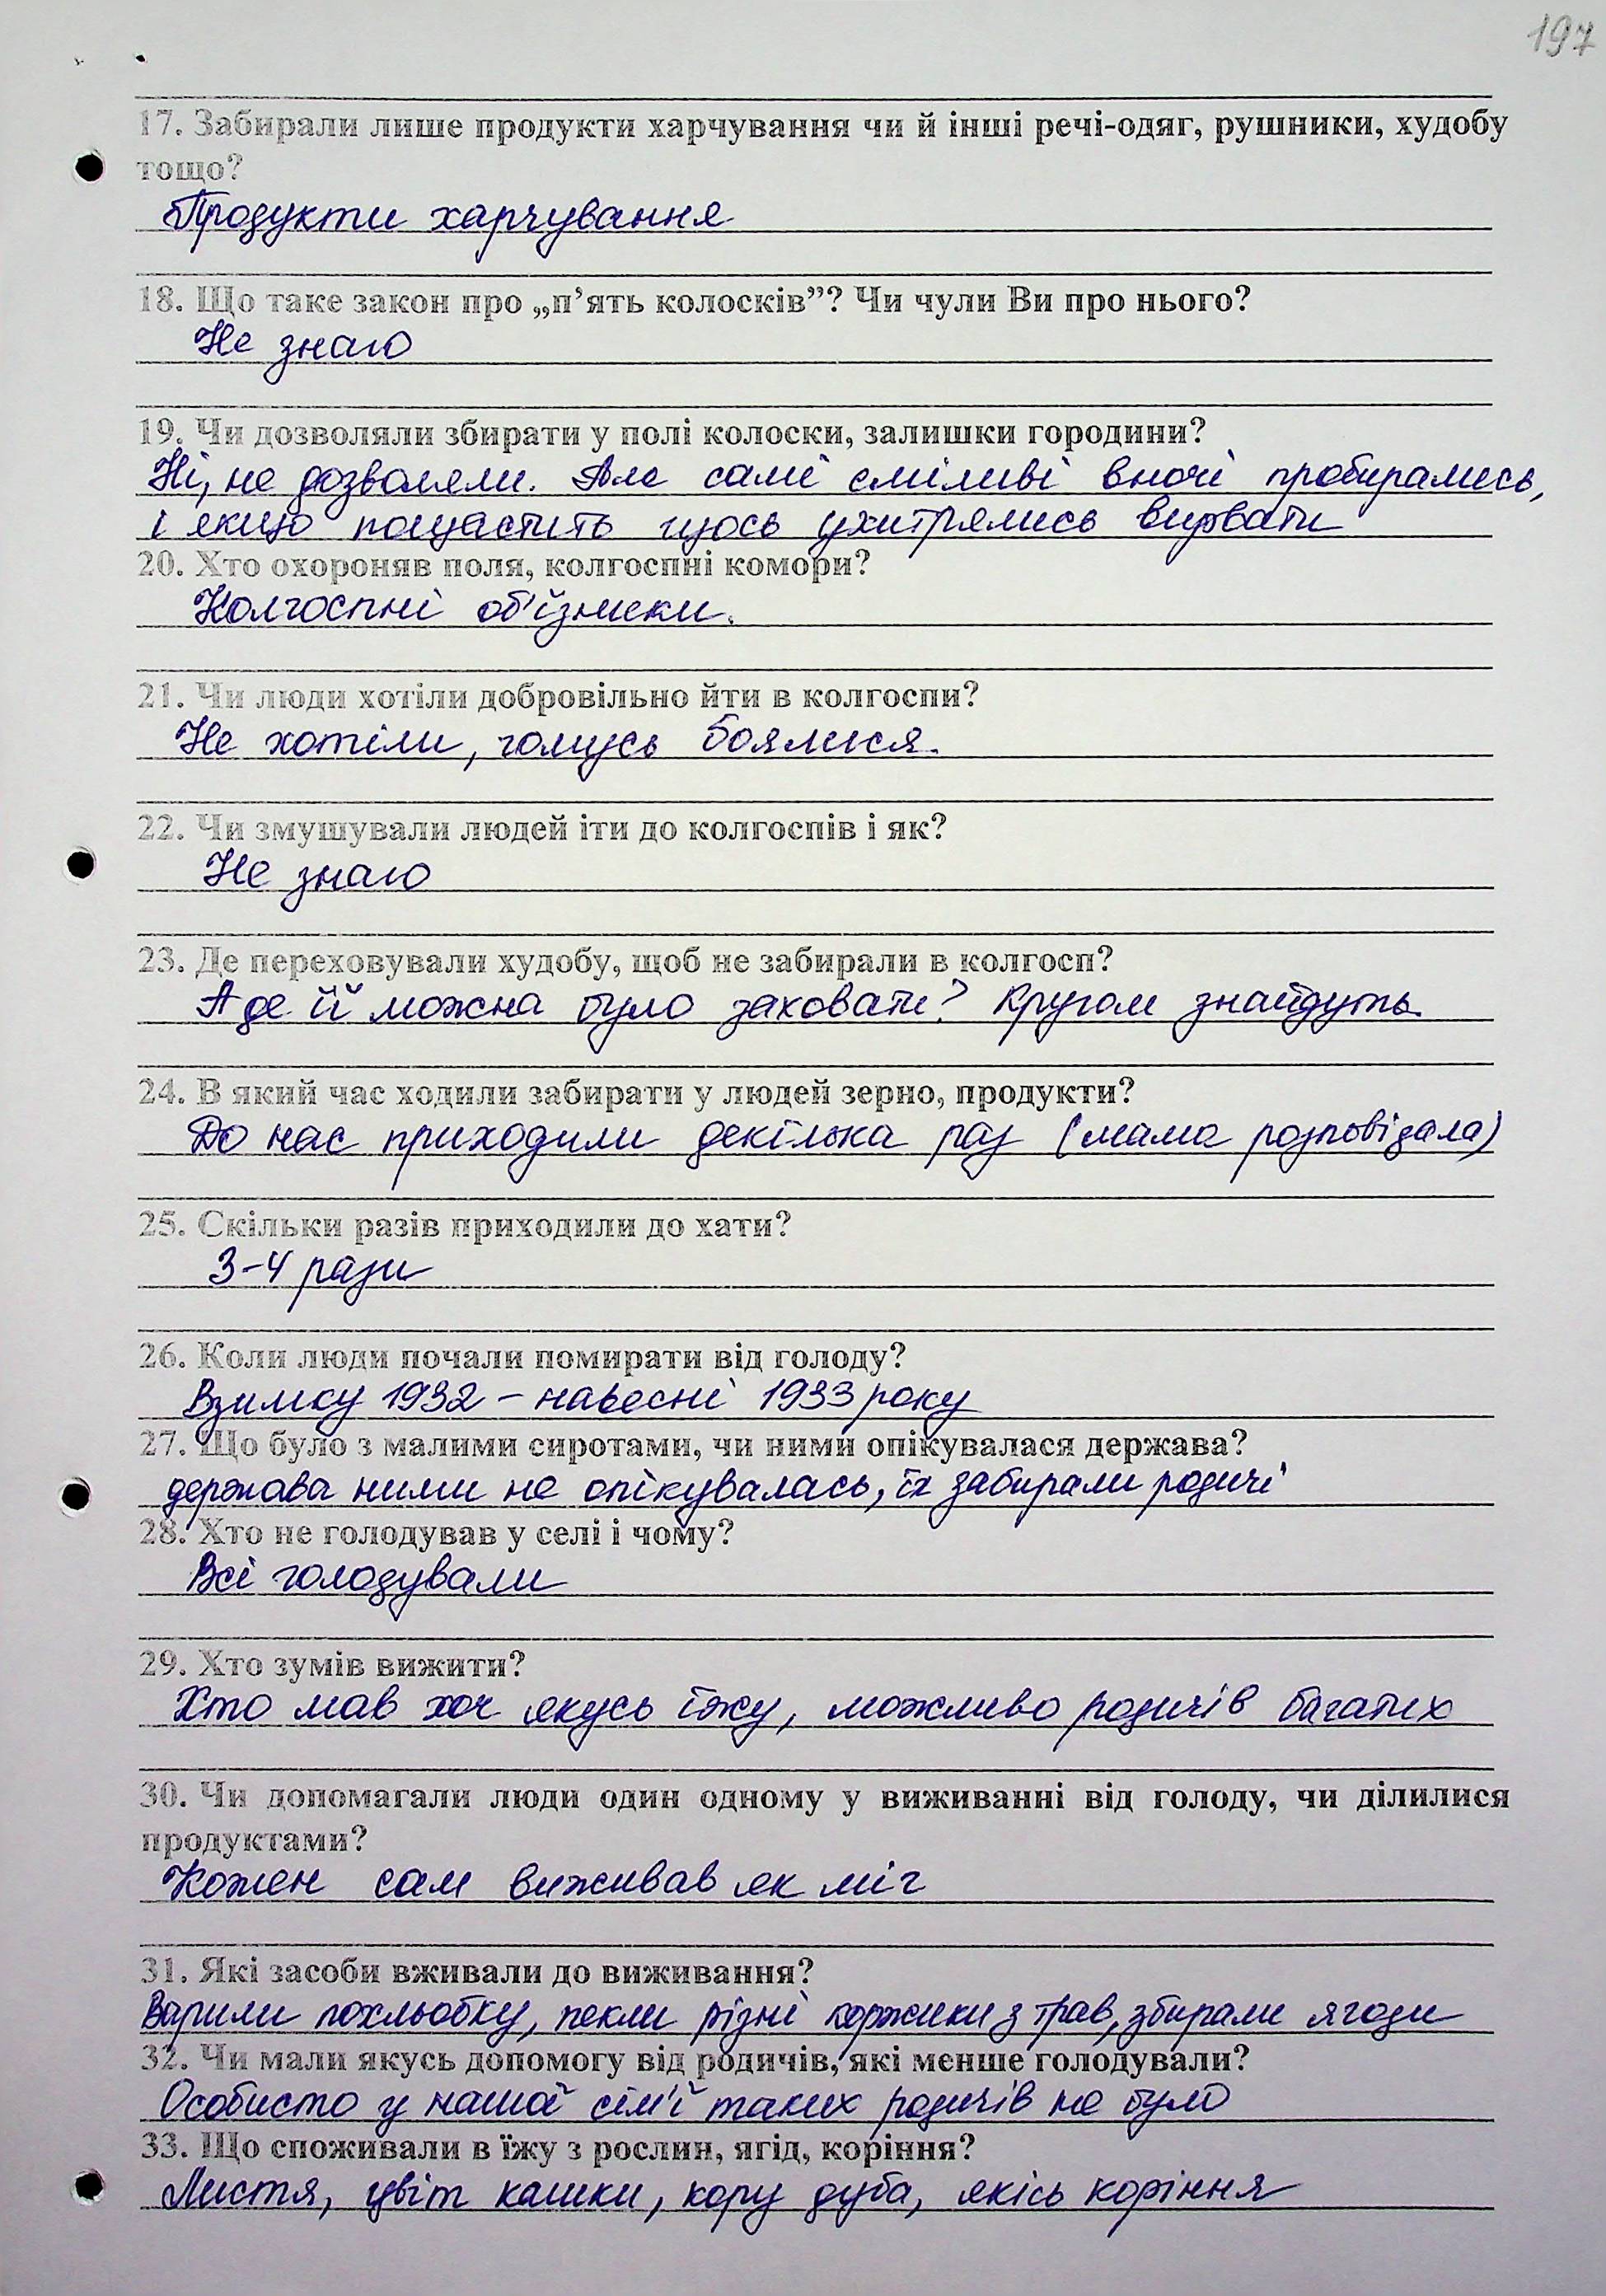 197
17. Забирали лише продукти харчування чи й інші речі-одяг, рушники, худобу
тощо?
Продукти харчування
18. Що таке закон про „п’ять колосків”? Чи чули Ви про нього?
Не знаю
19. Чи дозволяли збирати у полі колоски, залишки городини?
Ні, не дозволяли. Але самі сміливі вночі пробирались,
і якщо пощастить щось ухитрялись вирвати
20. Хто охороняв поля, колгоспні комори?
Колгоспні об'їзники.
21. Чи люди хотіли добровільно йти в колгоспи?
Не хотіли, чомусь боялися.
22. Чи змушували людей іти до колгоспів і як?
Не знаю
23. Де переховували худобу, щоб не забирали в колгосп?
А де її можна було заховати? Кругом знайдуть.
24. В який час ходили забирати у людей зерно, продукти?
До нас приходили декілька раз (мама розповідала)
25. Скільки разів приходили до хати?
3-4 рази
26. Коли люди почали помирати від голоду?
Взимку 1932 – навесні 1933 року
27. Що було з малими сиротами, чи ними опікувалася держава?
держава ними не опікувалась, їх забирали родичі
28. Хто не голодував у селі і чому?
Всі голодували
29. Хто зумів вижити?
Хто мав хоч якусь їжу, можливо родичів багатих
30. Чи допомагали люди один одному у виживанні від голоду, чи ділилися
продуктами?
Кожен сам виживав як міг
31. Які засоби вживали до виживання?
Варили похльобку, пекли різні коржики з трав, збирали ягоди
32. Чи мали якусь допомогу від родичів, які менше голодували?
Особисто у нашої сім'ї таких родичів не було
33. Що споживали в їжу з рослин, ягід, коріння?
Листя, цвіт кашки, кору дуба, якісь коріння